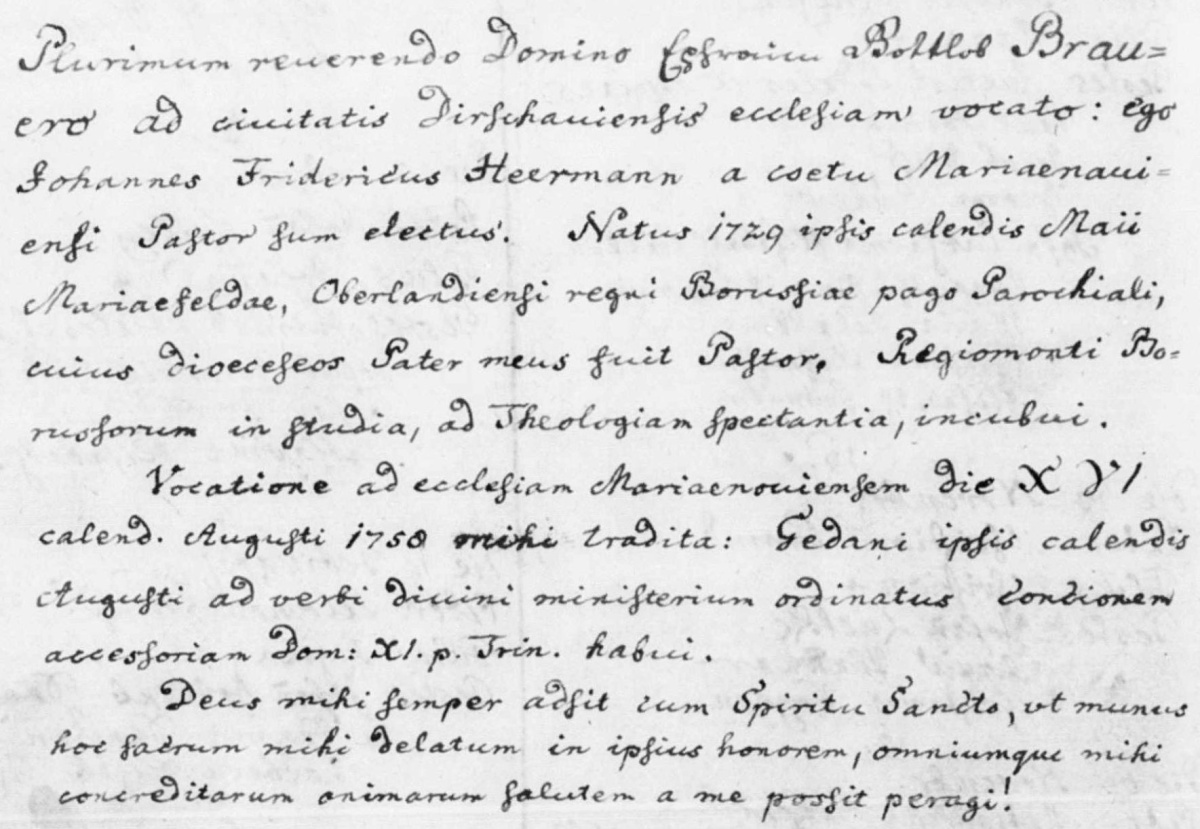 Plurimum reuerendo Domino Ephraim Bottlob Brau=
ero ad ciuitatis Dirschauiensis ecclesiam vocato: ego
Johannes Fridericus Heermann a coetu Mariaenaui=
ensi Pastor sum electus. Natus 1729 ipsis calendis Maii
Mariaefeldae, Oberlandiensi regni Borussiae pago Parochiali,
cuius dioeceseos Pater meus fuit Pastor. Regiomonti Bo=
russorum in studia, ad Theologiam spectantia, incubui.
Vocatione ad ecclesiam Mariaenouiensem die XVI
calend. Augusti 1758 mihi tradita: Gedani ipsis calendis
Augusti ad verbi diuini ministerium ordinatus concionem
accessoriam Dom: XI. p. Trin. habui.
Deus mihi semper adsit cum Spiritu Sancto, vt munus
hoc sacrum mihi delatum in ipsius honorem, omniumque mihi
concreditarum animarum salutem a me possit peragi!